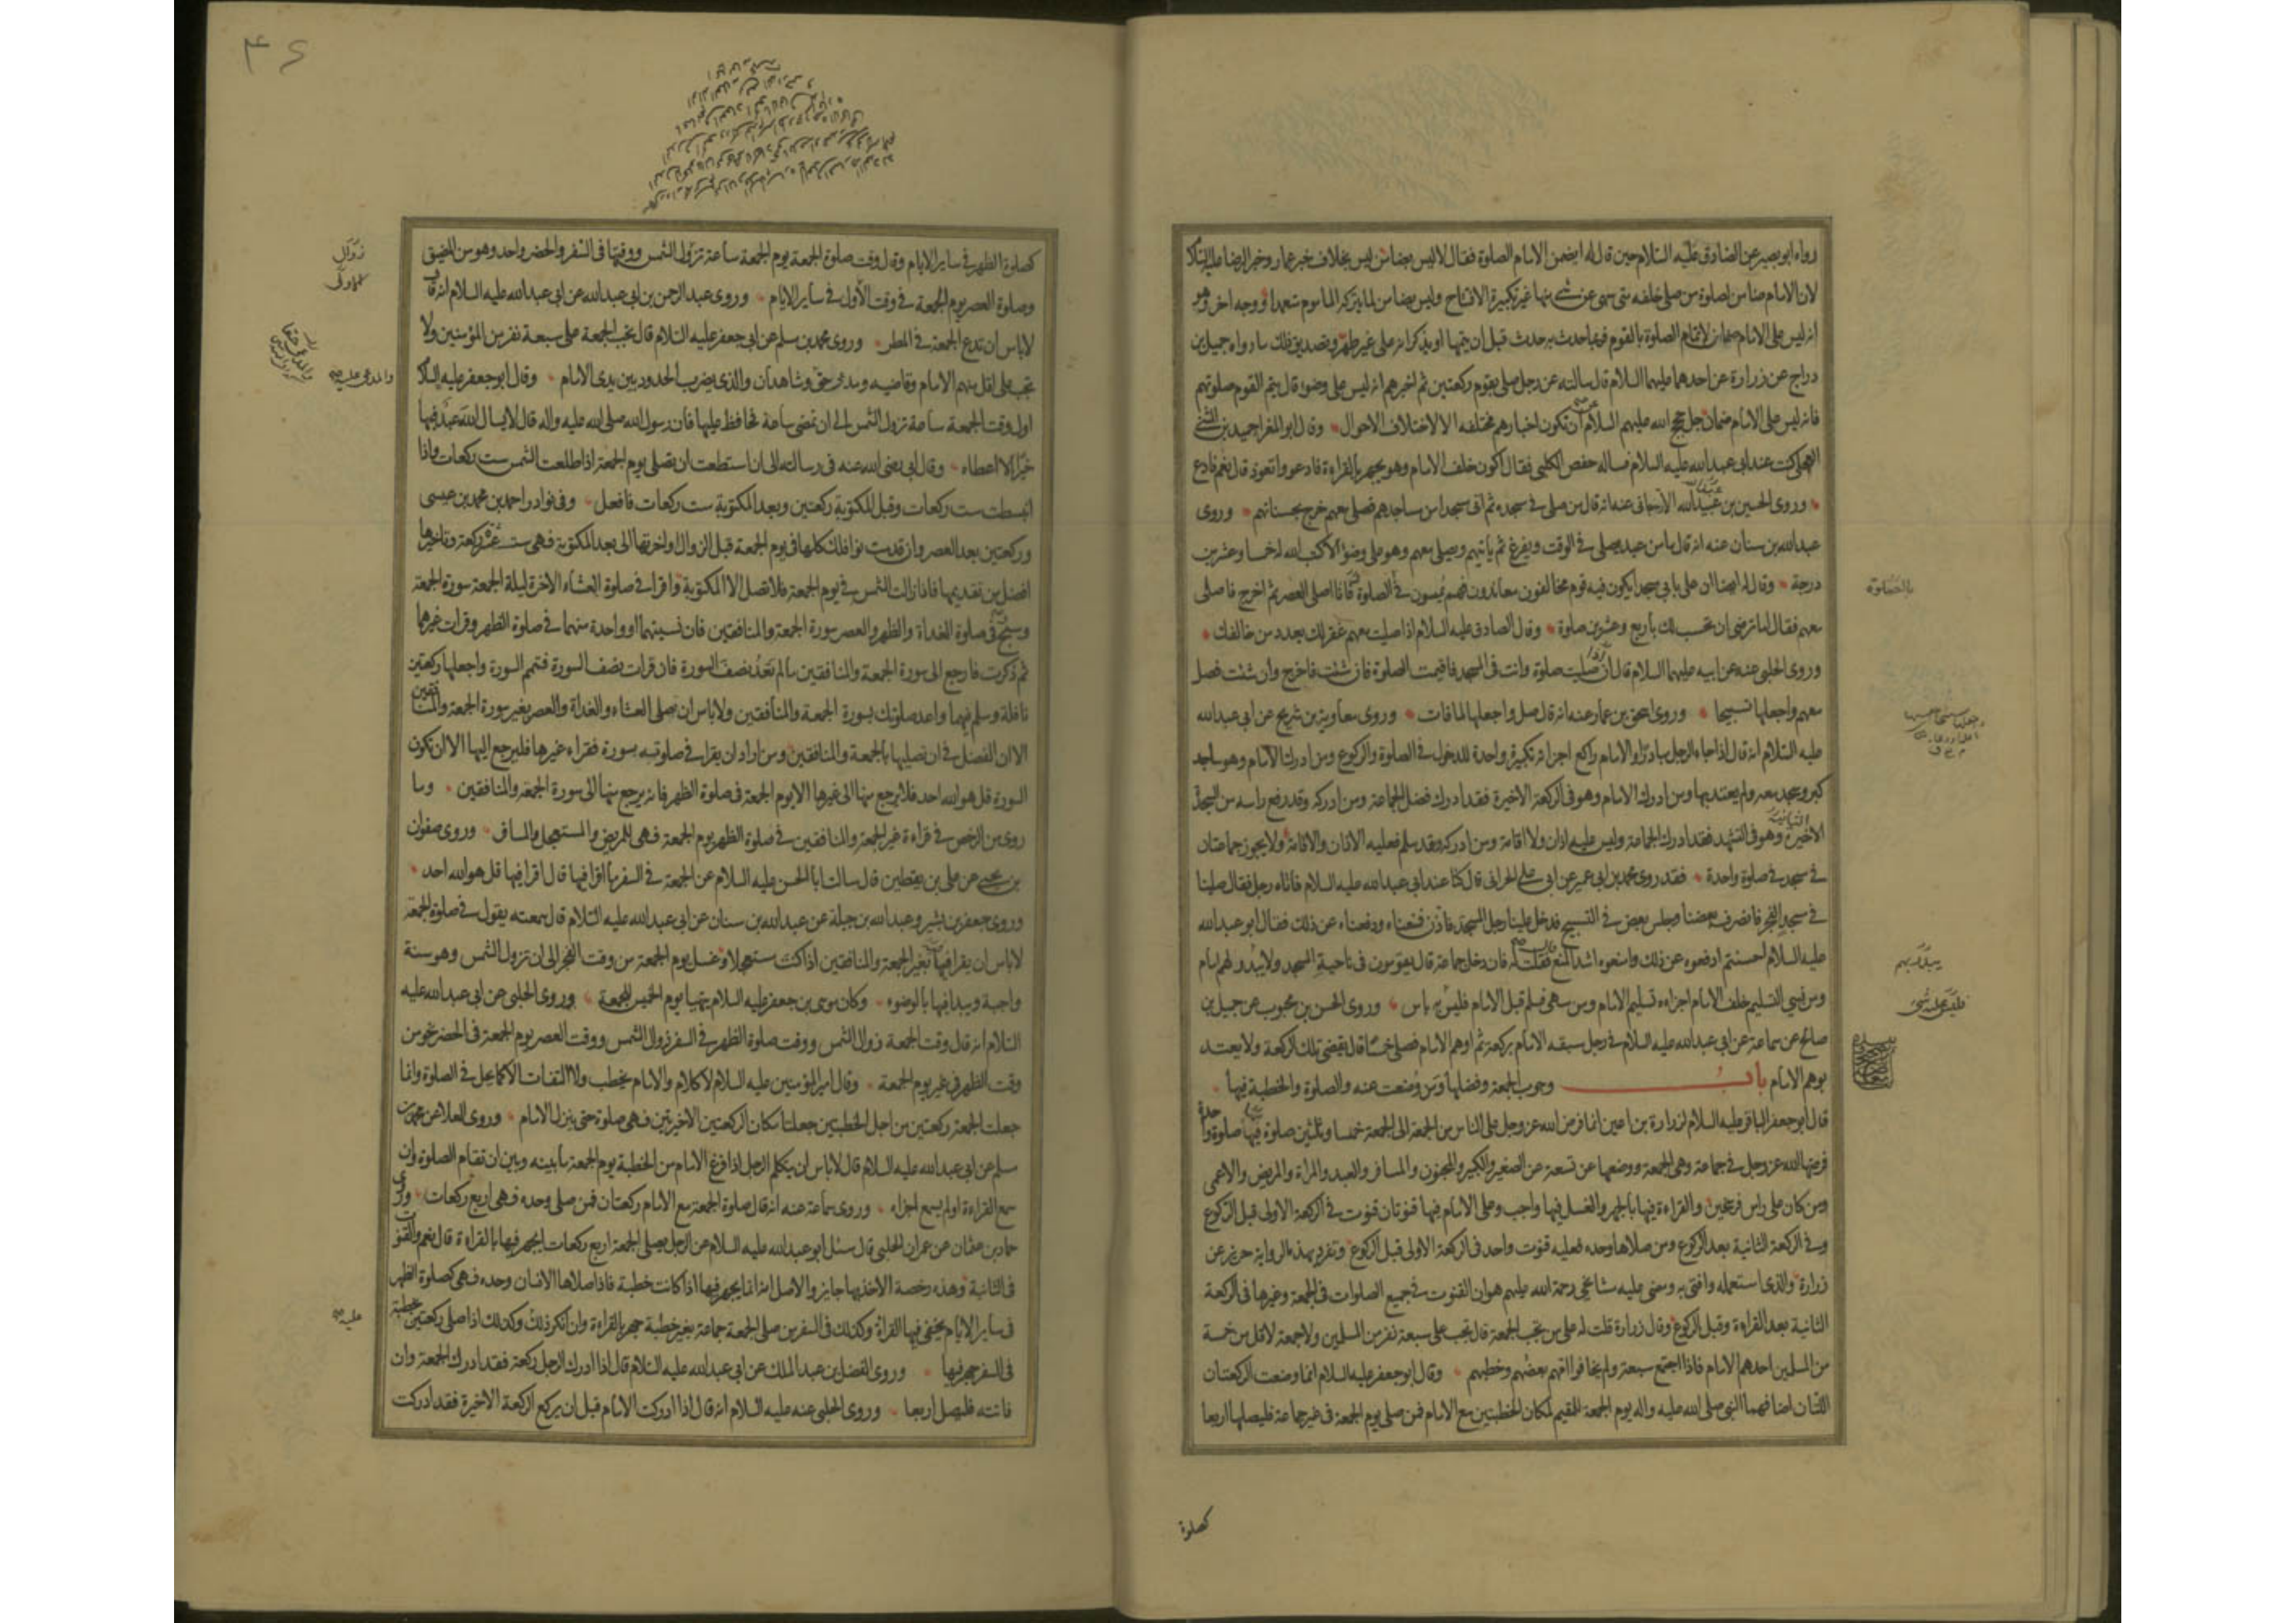 رواه ابو بصير عن الصادق عليه السلام حين قال له ايضمن الامام الصلوة فقال لا ليس بضامن ليس بخلاف خبر عمار وخبر الرضا عليه السلام
لان الامام ضامن لصلوة من صلى خلفه متى سهى عن شئ منها غير تكبيرة الافتتاح وليس بضامن لما يتركه الماموم متعمدا ووجه اخر وهو
انه ليس على الامام ضمان لاتمام الصلوة بالقوم فربما حدث به حدث قبل ان يتمها او يذكر انه على غير طهر وتصديق ذلك ما رواه جميل بن
دراج عن زرارة عن احدهما عليهما السلام قال سالته عن رجل صلى بقوم ركعتين ثم اخبرهم انه ليس على وضوء قال يتم القوم صلوتهم
فانه ليس على الامام ضمان جل حجج الله عليهم السلام ان تكون اخبارهم مختلفه الا لاختلاف الاحوال وقال ابو المغرا حميد بن المثنى
العجلي كنت عند ابي عبد الله عليه السلام فساله حفص الكلبي فقال اكون خلف الامام وهو يجهر بالقراءة فادعو واتعوذ قال نعم فادع
وروى الحسين بن عبيد الله الارجاني عنه انه قال من صلى في مسجده ثم اتى مسجدا من مساجدهم فصلى معهم خرج بحسناتهم وروى
عبد الله بن سنان عنه انه قال ما من عبد يصلي في الوقت ويفرغ ثم ياتيهم ويصلي معهم وهو على وضوء الا كتب الله له خمسا وعشرين
درجة وقال له ايضا ان على بابي مسجدا يكون فيه قوم مخالفون معاندون فهم يمسون في الصلوة فانا اصلي العصر ثم اخرج فاصلى
معهم فقال اما ترضى ان تحسب لك باربع وعشرين صلوة وقال الصادق عليه السلام اذا صليت معهم غفر لك بعدد من خالفك
وروى الحلبي عنه عن ابيه عليهما السلام قال ان صليت صلوة وانت في المسجد فاقيمت الصلوة فان شئت فاخرج وان شئت فصل
معهم واجعلها تسبيحا وروى اسحق بن عمار عنه انه قال صل واجعلها لما فات وروى معاوية بن شريح عن ابي عبد الله
عليه السلام انه قال اذا جاء الرجل مبادرا والامام راكع اجزاته تكبيرة واحدة للدخول في الصلوة والركوع ومن ادرك الامام وهو ساجد
كبر وسجد معه ولم يعتد بها ومن ادرك الامام وهو في الركعة الاخيرة فقد ادرك فضل الجماعة ومن ادركه وقد رفع راسه من السجدة
الاخيرة وهو في التشهد فقد ادرك الجماعة وليس عليه اذان ولا اقامة ومن ادركه وقد سلم فعليه الاذان والاقامة ولا يجوز جماعتان
في مسجد في صلوة واحدة فقد روى محمد بن ابي عمير عن ابي علي الحراني قال كنا عند ابي عبد الله عليه السلام فاتاه رجل فقال صلينا
في مسجد الفجر فانصرف بعضنا وجلس بعض في التسبيح فدخل علينا رجل المسجد فاذن فمنعناه ودفعناه عن ذلك فقال ابو عبد الله
عليه السلام احسنتم ادفعوه عن ذلك وامنعوه اشد المنع فقلت له فان دخل جماعة قال يقومون في ناحية المسجد ولا يبدو لهم امام
ومن نسي التسليم خلف الامام اجزاه تسليم الامام ومن سهى فسلم قبل الامام فليس به باس وروى الحسن بن محبوب عن جميل بن
صالح عن سماعة عن ابي عبد الله عليه السلام في رجل سبقه الامام بركعة ثم اوهم الامام فصلى خمسا قال يقضي تلك الركعة ولا يعتد
بوهم الامام باب وجوب الجمعة وفضلها ومن وضعت عنه والصلوة والخطبة فيها
قال ابو جعفر الباقر عليه السلام لزرارة بن اعين انما فرض الله عز وجل على الناس من الجمعة الى الجمعة خمسا وثلثين صلوة فيها صلوة واحدة
فرضها الله عز وجل في جماعة وهي الجمعة ووضعها عن تسعة عن الصغير والكبير والمجنون والمسافر والعبد والمراة والمريض والاعمى
ومن كان على راس فرسخين والقراءة فيها بالجهر والغسل فيها واجب وعلى الامام فيها قنوتان قنوت في الركعة الاولى قبل الركوع
وفي الركعة الثانية بعد الركوع ومن صلاها وحده فعليه قنوت واحد في الركعة الاولى قبل الركوع وتفرد بهذه الرواية حريز عن
زرارة والذي استعمله وافتي به ومضى عليه مشايخي رحمة الله عليهم هو ان القنوت في جميع الصلوات في الجمعة وغيرها في الركعة
الثانية بعد القراءة وقبل الركوع وقال زرارة قلت له على من تجب الجمعة قال تجب على سبعة نفر من المسلمين ولا جمعة لاقل من خمسة
من المسلمين احدهم الامام فاذا اجتمع سبعة ولم يخافوا امهم بعضهم وخطبهم وقال ابو جعفر عليه السلام انما وضعت الركعتان
اللتان اضافهما النبي صلى الله عليه واله يوم الجمعة للمقيم لمكان الخطبتين مع الامام فمن صلى يوم الجمعة في غير جماعة فليصلها اربعا
كصلوة
بالصلوة
كصلوة الظهر في ساير الايام وقال وقت صلوة الجمعة يوم الجمعة ساعة تزول الشمس ووقتها في السفر والحضر واحد وهو من المضيق
وصلوة العصر يوم الجمعة في وقت الاولى في ساير الايام وروى عبد الرحمن بن ابي عبد الله عن ابي عبد الله عليه السلام انه قال
لا باس ان تدع الجمعة في المطر وروى محمد بن مسلم عن ابي جعفر عليه السلام قال تجب الجمعة على سبعة نفر من المؤمنين ولا
تجب على اقل منهم الامام وقاضيه ومدعي حق وشاهدان والذي يضرب الحدود بين يدى الامام وقال ابو جعفر عليه السلام
اول وقت الجمعة ساعة تزول الشمس الى ان تمضى ساعة تحافظ عليها فان رسول الله صلى الله عليه واله قال لا يسال الله عبد فيها
خيرا الا اعطاه وقال ابي رضي الله عنه في رسالته الى ان استطعت ان تصلي يوم الجمعة اذا طلعت الشمس ست ركعات واذا
انبسطت ست ركعات وقبل المكتوبة ركعتين وبعد المكتوبة ست ركعات فافعل وفي نوادر احمد بن محمد بن عيسى
وركعتين بعد العصر وان قدمت نوافلك كلها في يوم الجمعة قبل الزوال او اخرتها الى بعد المكتوبة فهي ست عشرة ركعة وتاخيرها
افضل من تقديمها فاذا زالت الشمس في يوم الجمعة فلا تصل الا المكتوبة واقرا في صلوة العشاء الاخرة ليلة الجمعة سورة الجمعة
وسبح وفي صلوة الغداة والظهر والعصر سورة الجمعة والمنافقين فان نسيتهما او واحدة منهما في صلوة الظهر وقرات غيرهما
ثم ذكرت فارجع الى سورة الجمعة والمنافقين ما لم تعد نصف السورة فان قرات نصف السورة فتمم السورة واجعلها ركعتين
نافلة وسلم فيهما واعد صلوتك بسورة الجمعة والمنافقين ولا باس ان تصلى العشاء والغداة والعصر بغير سورة الجمعة والمنافقين
الا ان الفضل في ان تصليها بالجمعة والمنافقين ومن اراد ان يقرا في صلوته بسورة فقراء غيرها فليرجع اليها الا ان تكون
السورة قل هو الله احد فلا يرجع منها الى غيرها الا يوم الجمعة في صلوة الظهر فانه يرجع منها الى سورة الجمعة والمنافقين وما
روى من الرخص في قراءة غير الجمعة والمنافقين في صلوة الظهر يوم الجمعة فهي للمريض والمستعجل والمسافر وروى صفوان
بن يحيى عن علي بن يقطين قال سالت ابا الحسن عليه السلام عن الجمعة في السفر ما اقرا فيها قال اقرا فيها قل هو الله احد
وروى جعفر بن بشير وعبد الله بن جبلة عن عبد الله بن سنان عن ابي عبد الله عليه السلام قال سمعته يقول في صلوة الجمعة
لا باس ان يقرا فيها بغير الجمعة والمنافقين اذا كنت مستعجلا وغسل يوم الجمعة من وقت الفجر الى ان تزول الشمس وهو سنة
واجبة ويبدا فيها بالوضوء وكان موسى بن جعفر عليه السلام يتهيا يوم الخميس للجمعة وروى الحلبي عن ابي عبد الله عليه
السلام انه قال وقت الجمعة زوال الشمس ووقت صلوة الظهر في السفر زوال الشمس ووقت العصر يوم الجمعة في الحضر نحو من
وقت الظهر في غير يوم الجمعة وقال امير المؤمنين عليه السلام لا كلام والامام يخطب ولا التفات الا كما يحل في الصلوة وانما
جعلت الجمعة ركعتين من اجل الخطبتين جعلتا مكان الركعتين الاخيرتين فهي صلوة حتى ينزل الامام وروى العلا عن محمد بن
مسلم عن ابي عبد الله عليه السلام قال لا باس ان يتكلم الرجل اذا فرغ الامام من الخطبة يوم الجمعة ما بينه وبين ان تقام الصلوة وان
سمع القراءة او لم يسمع اجزاه وروى سماعة عنه انه قال صلوة الجمعة مع الامام ركعتان فمن صلى وحده فهي اربع ركعات وروى
حماد بن عثمان عن عمران الحلبي قال سئل ابو عبد الله عليه السلام عن الرجل يصلي الجمعة اربع ركعات ايجهر فيها بالقراءة قال نعم والقنوت
في الثانية وهذه رخصة الاخذ بها جايز والاصل انه انما يجهر فيها اذا كانت خطبة فاذا صلاها الانسان وحده فهي كصلوة الظهر
في ساير الايام يخفى فيها القراءة وكذلك في السفر من صلى الجمعة جماعة بغير خطبة جهر بالقراءة وان انكر ذلك وكذلك اذا صلى ركعتين بخطبة
في السفر جهر فيها وروى الفضل بن عبد الملك عن ابي عبد الله عليه السلام قال اذا ادرك الرجل ركعة فقد ادرك الجمعة وان
فاتته فليصل اربعا وروى الحلبي عنه عليه السلام انه قال اذا ادركت الامام قبل ان يركع الركعة الاخيرة فقد ادركت
زوال
والمدعى عليه
عليه